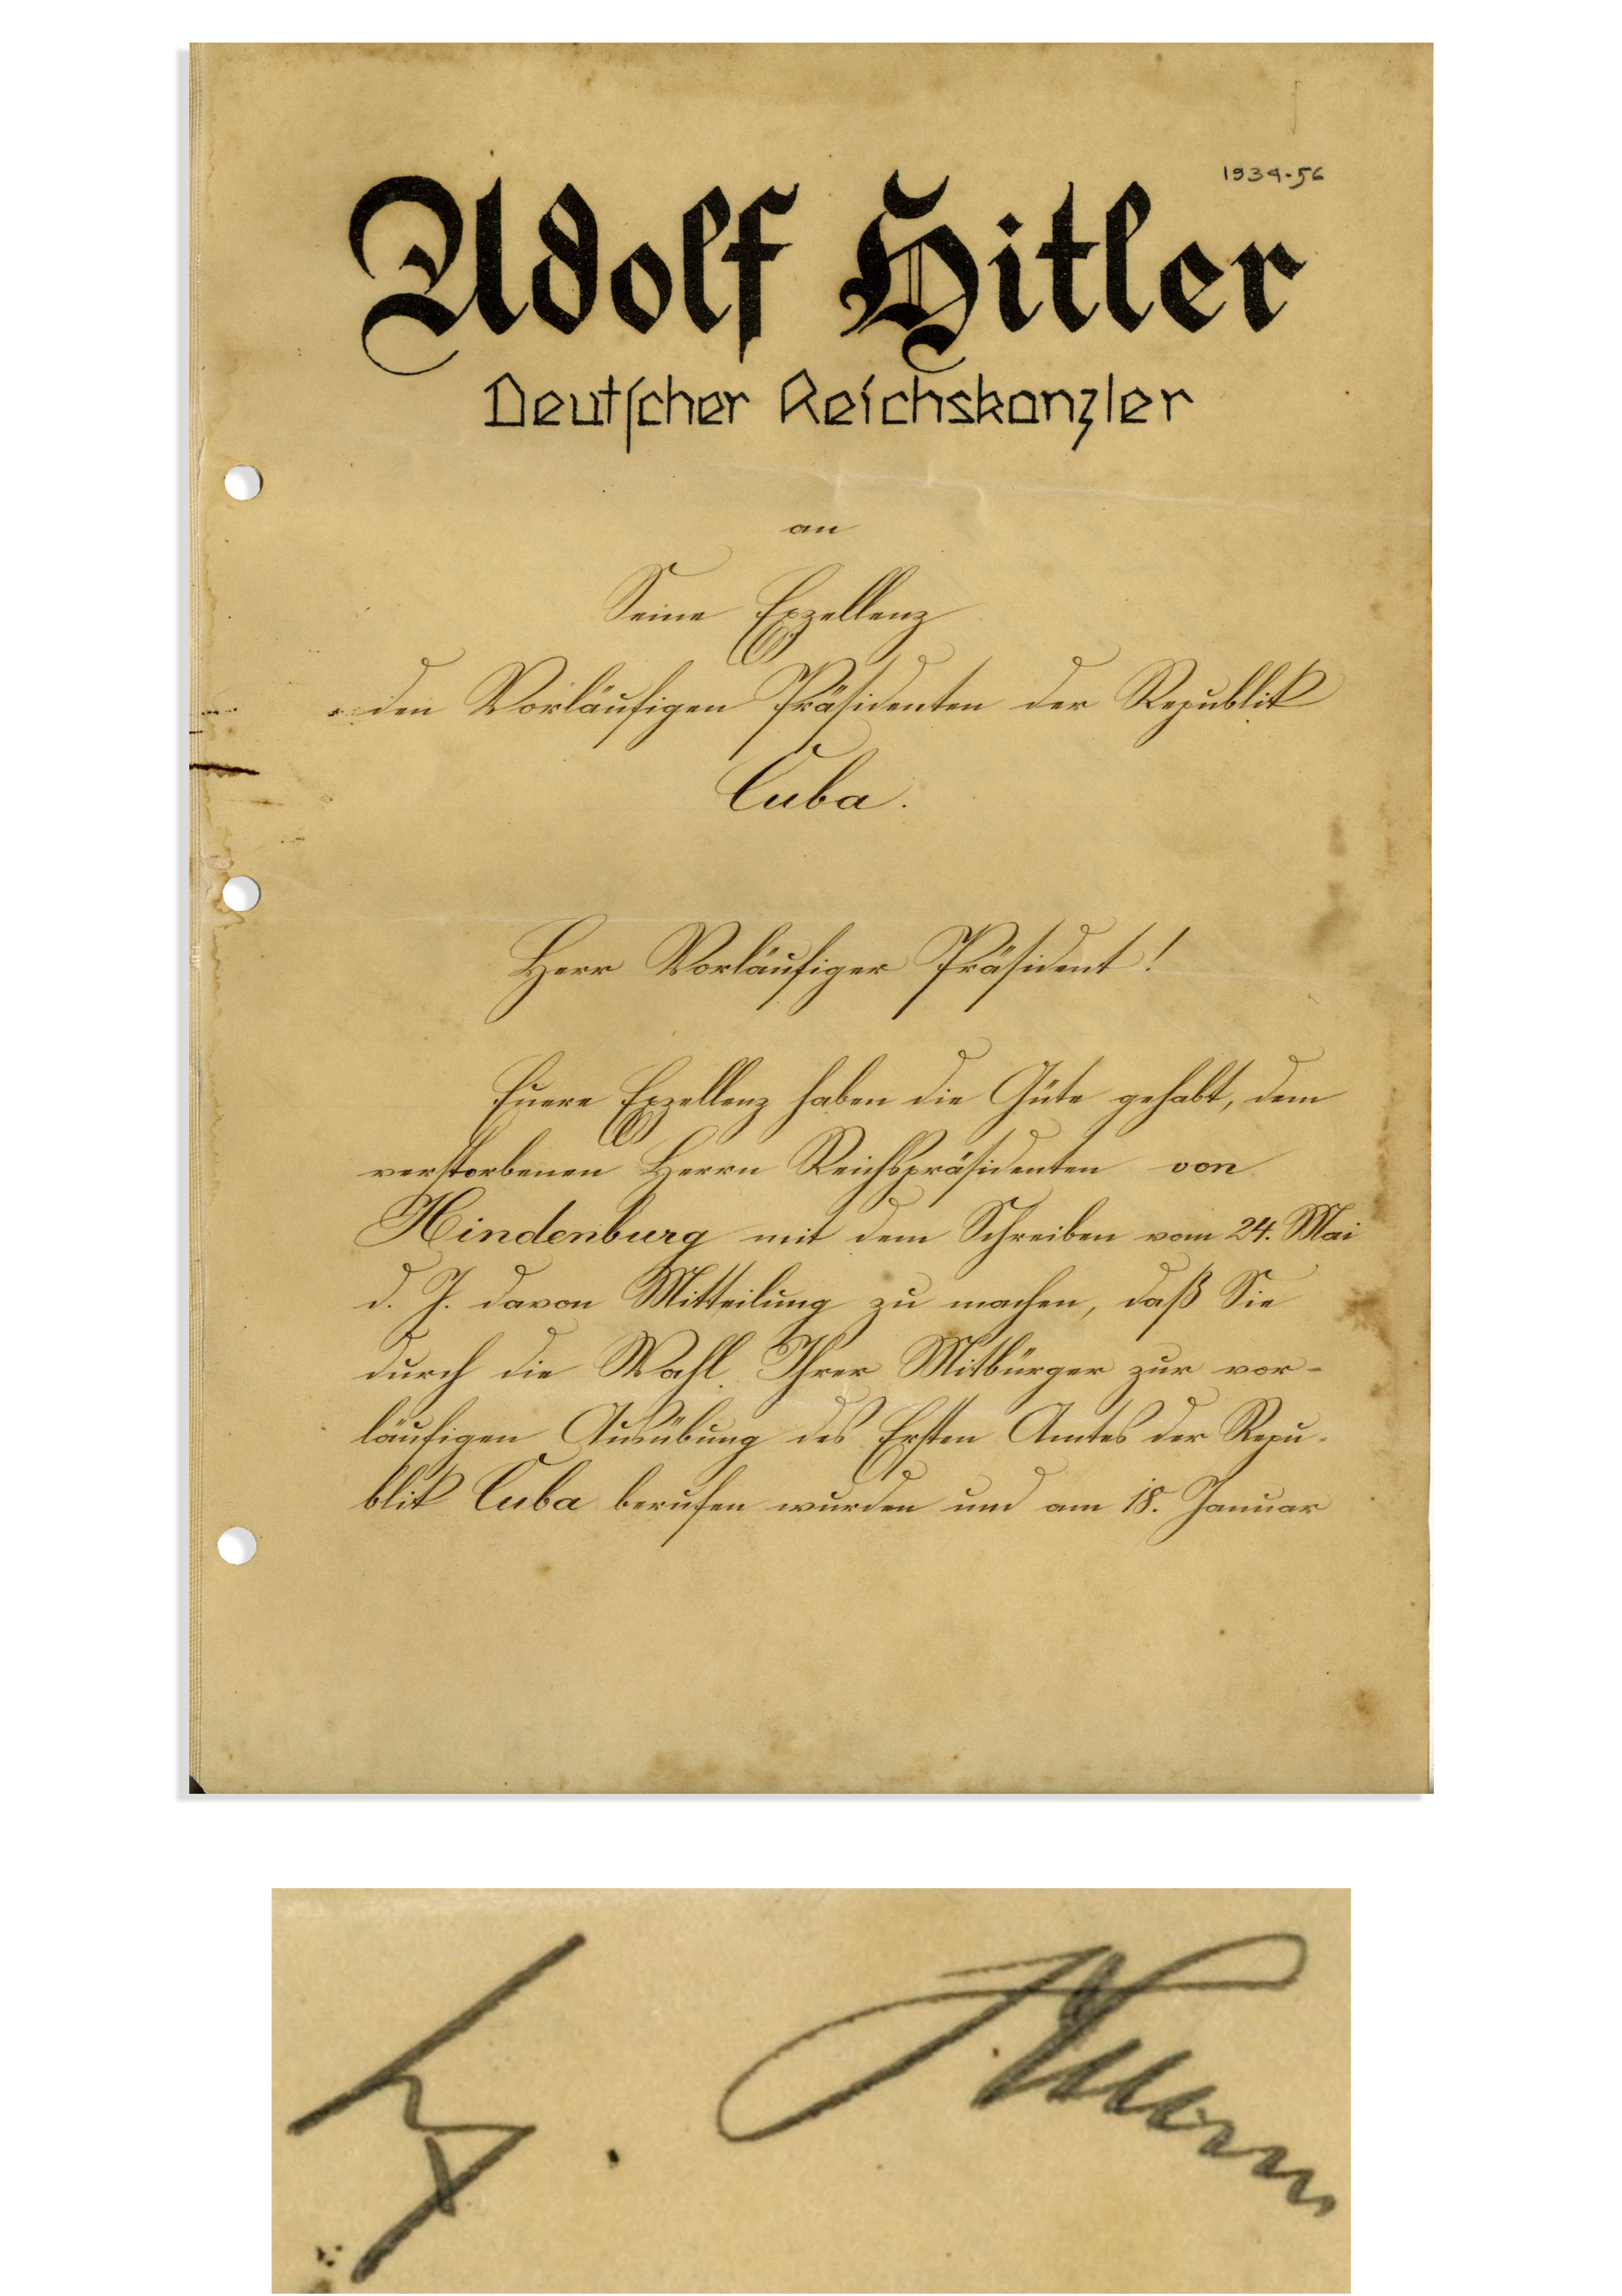 1934-56
Adolf Hitler
Deutſcher Reichskanzler
an
Seine Exzellenz
den Vorläufigen Präsidenten der Republik
Cuba.
Herr Vorläufiger Präsident!
Euere Exzellenz haben die Güte gehabt, dem
verstorbenen Herrn Reichspräsidenten von
Hindenburg mit dem Schreiben vom 24. Mai
d. J. davon Mitteilung zu machen, daß Sie
durch die Wahl Ihrer Mitbürger zur vor-
läufigen Ausübung des Ersten Amtes der Repu-
blik Cuba berufen wurden und am 18. Januar